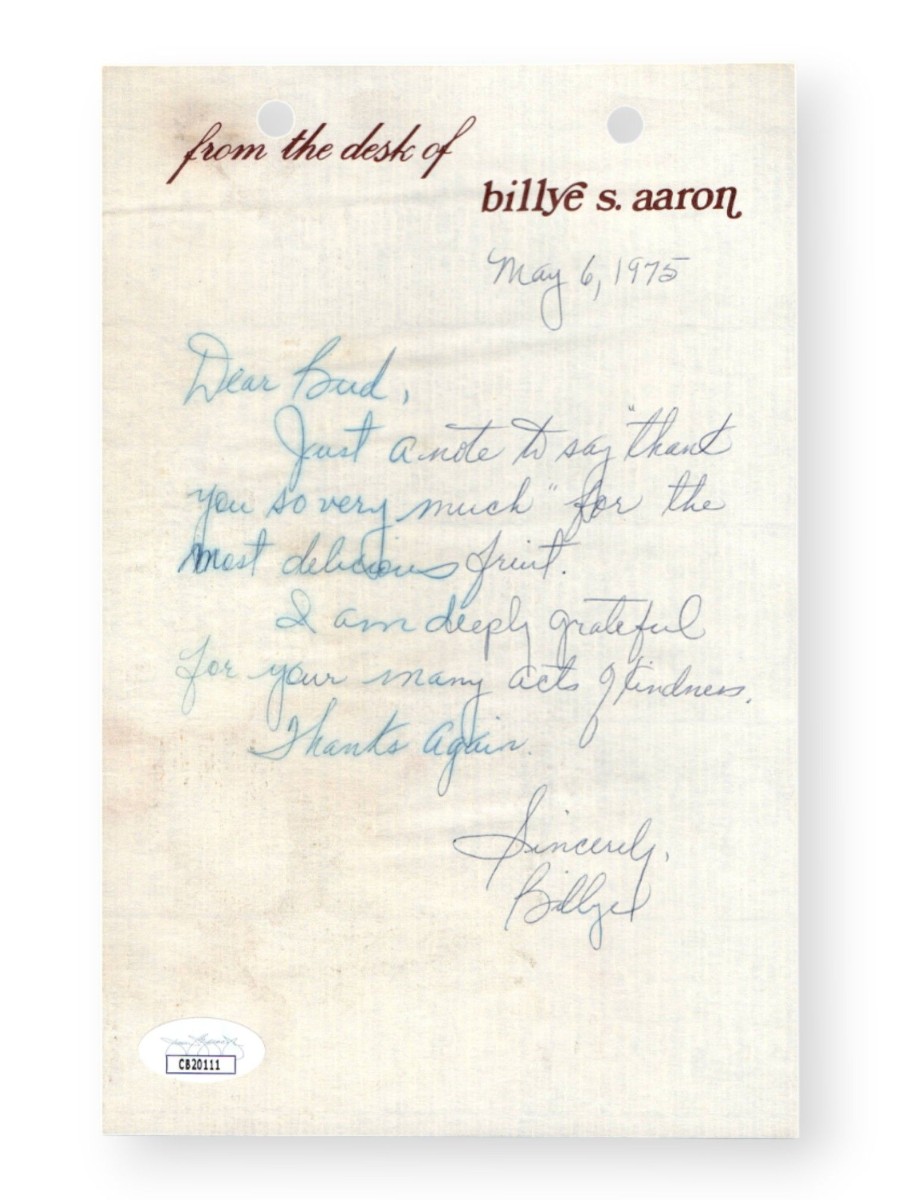 from the desk of
billye s. aaron
May 6, 1975
Dear Bud,
Just a note to say "thank
you so very much" for the
most delicious fruit.
I am deeply grateful
for your many acts of kindness.
Thanks Again.
Sincerely,
Billye
CB20111